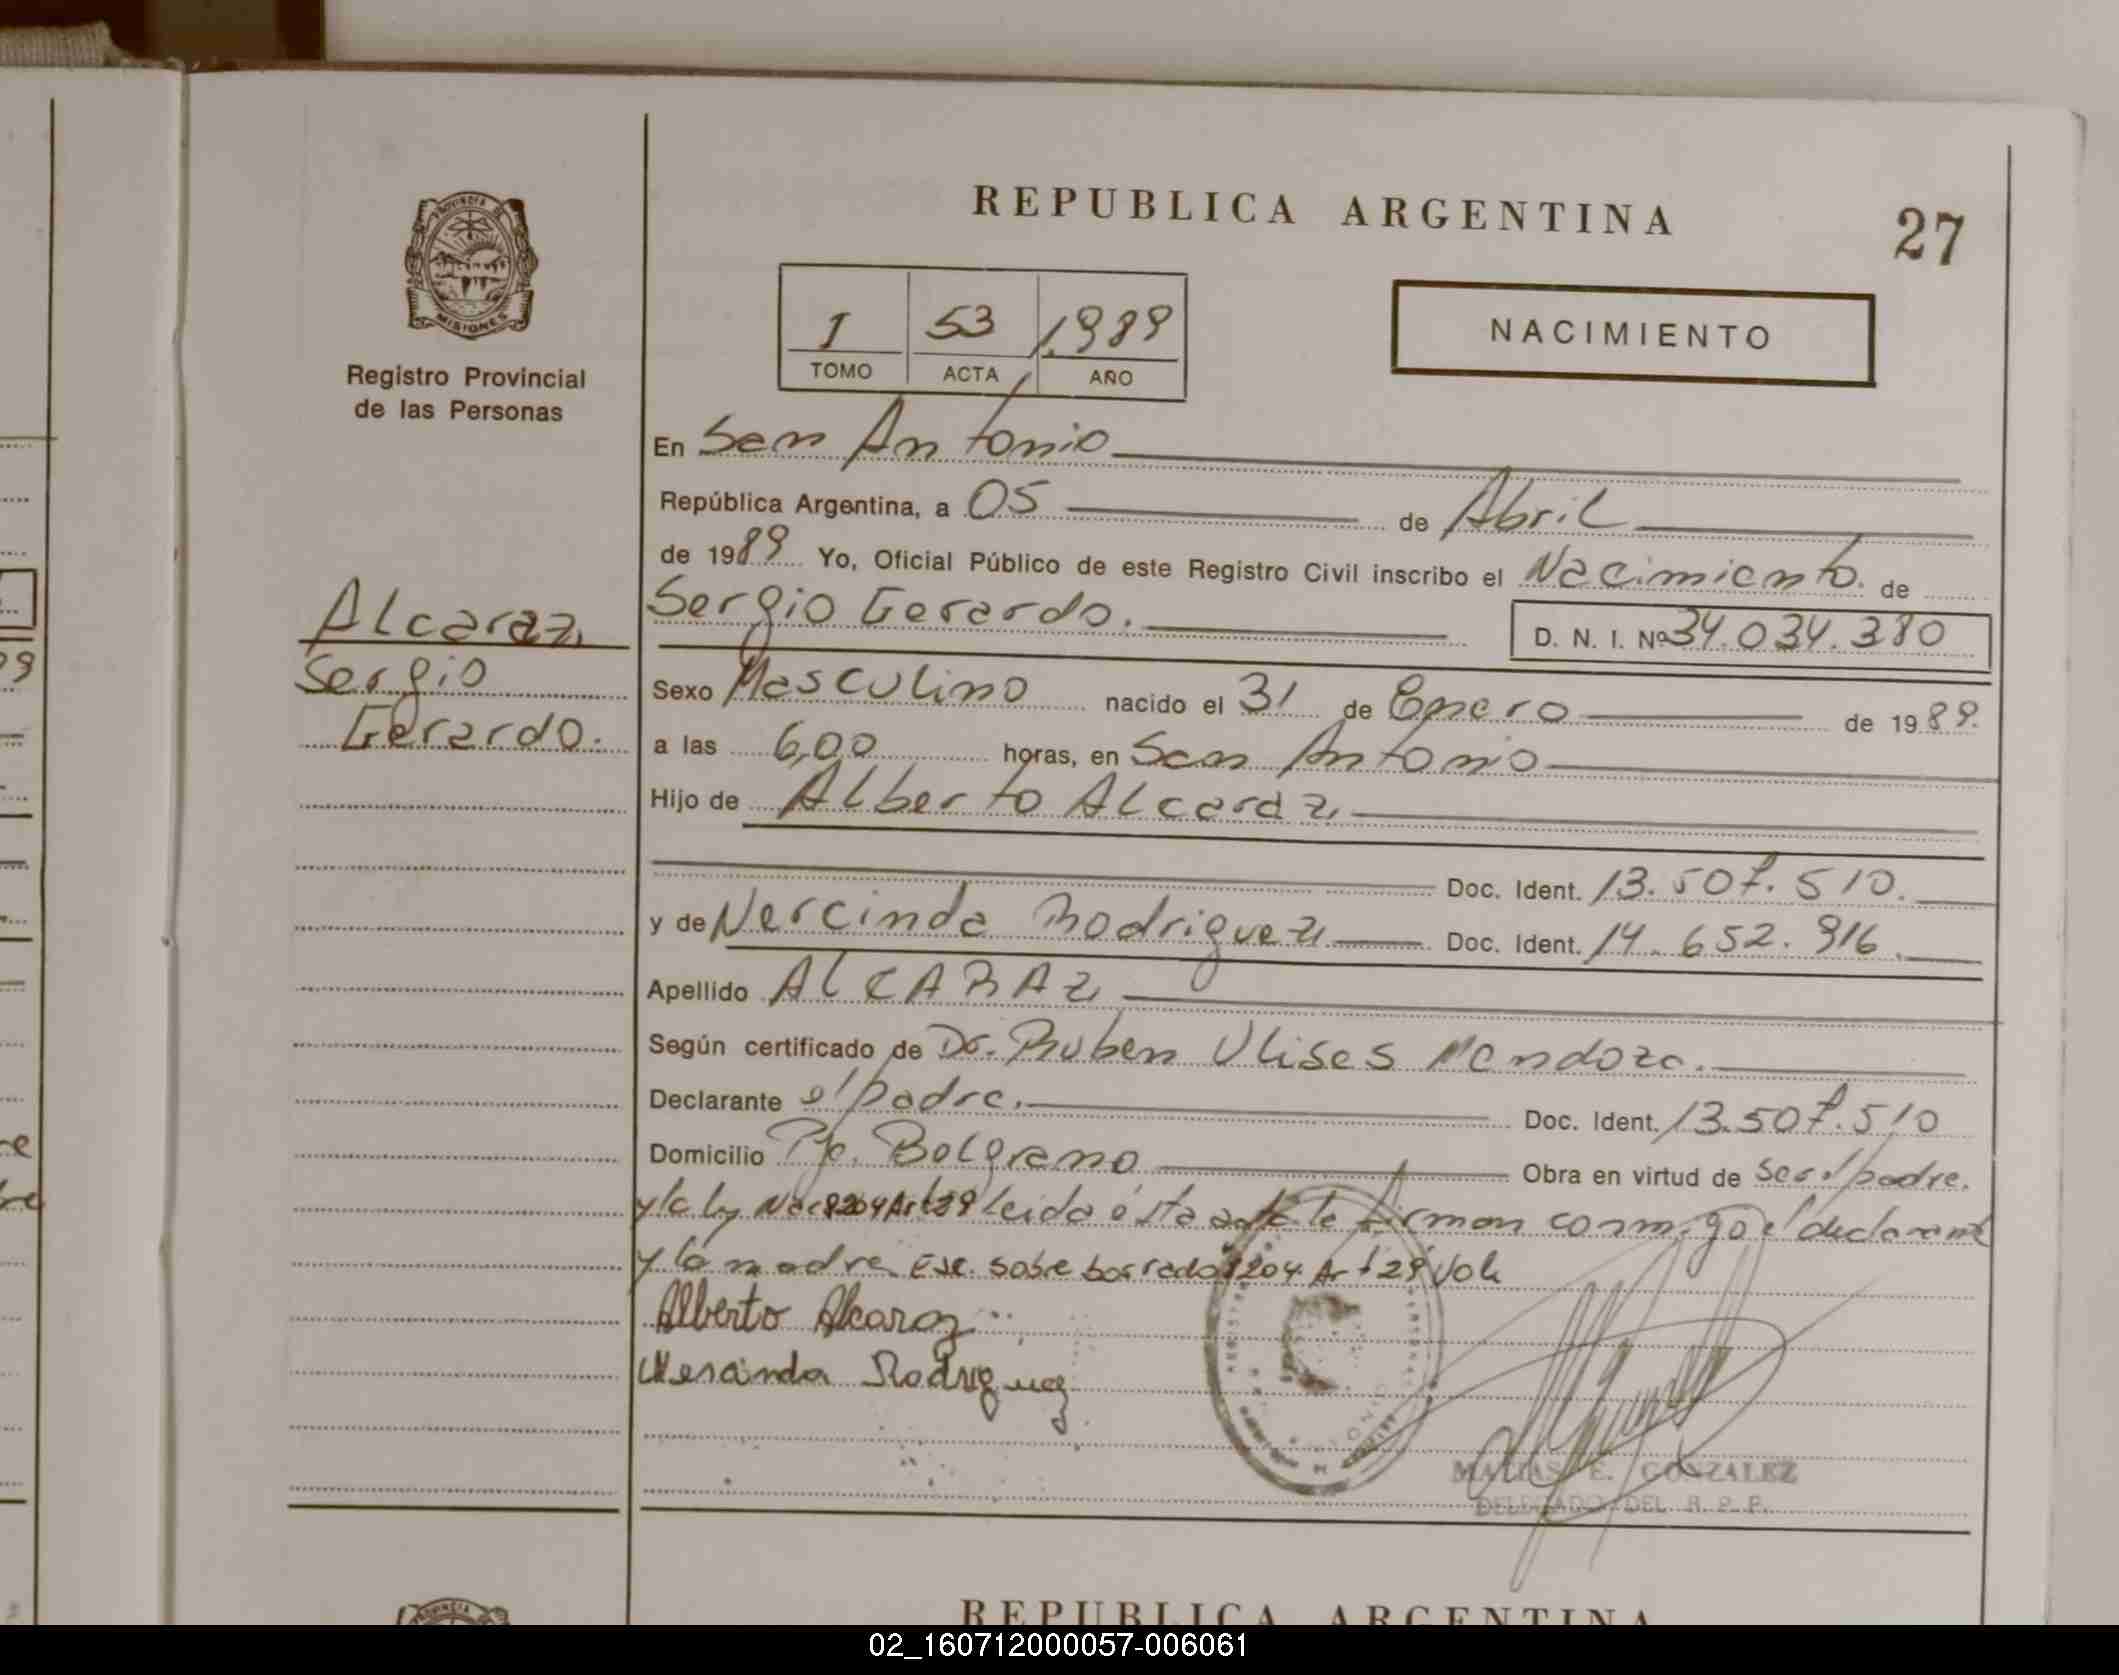 REPUBLICA ARGENTINA
27
PROVINCIA DE
MISIONES
Registro Provincial
de las Personas
I 53 1.989
TOMO ACTA AÑO
NACIMIENTO
En San Antonio
República Argentina, a 05 de Abril
de 1989 Yo, Oficial Público de este Registro Civil inscribo el Nacimiento. de
Sergio Gerardo. D. N. I. Nº 34.034.380
Alcaraz
Sergio
Gerardo.
Sexo Masculino nacido el 31 de Enero de 1989.
a las 6,00 horas, en San Antonio
Hijo de Alberto Alcaraz
Doc. Ident. 13.507.510.
y de Nercinda Rodriguez Doc. Ident. 14.652.916.
Apellido ALCARAZ
Según certificado de Dr. Ruben Ulises Mendoza.
Declarante el padre. Doc. Ident. 13.507.510
Domicilio Pje. Belgrano Obra en virtud de ser el padre.
y la ley Nac 8204 Art 29 leida ésta acta la firman conmigo el declarante
y la madre. Ese. sobre borrado 8204 Art 29 Vale
Alberto Alcaraz
Nercinda Rodriguez
MATIAS E. GONZALEZ
DELEGADO DEL R. P. P.
PROVINCIA
REPUBLICA ARGENTINA
02_160712000057-006061